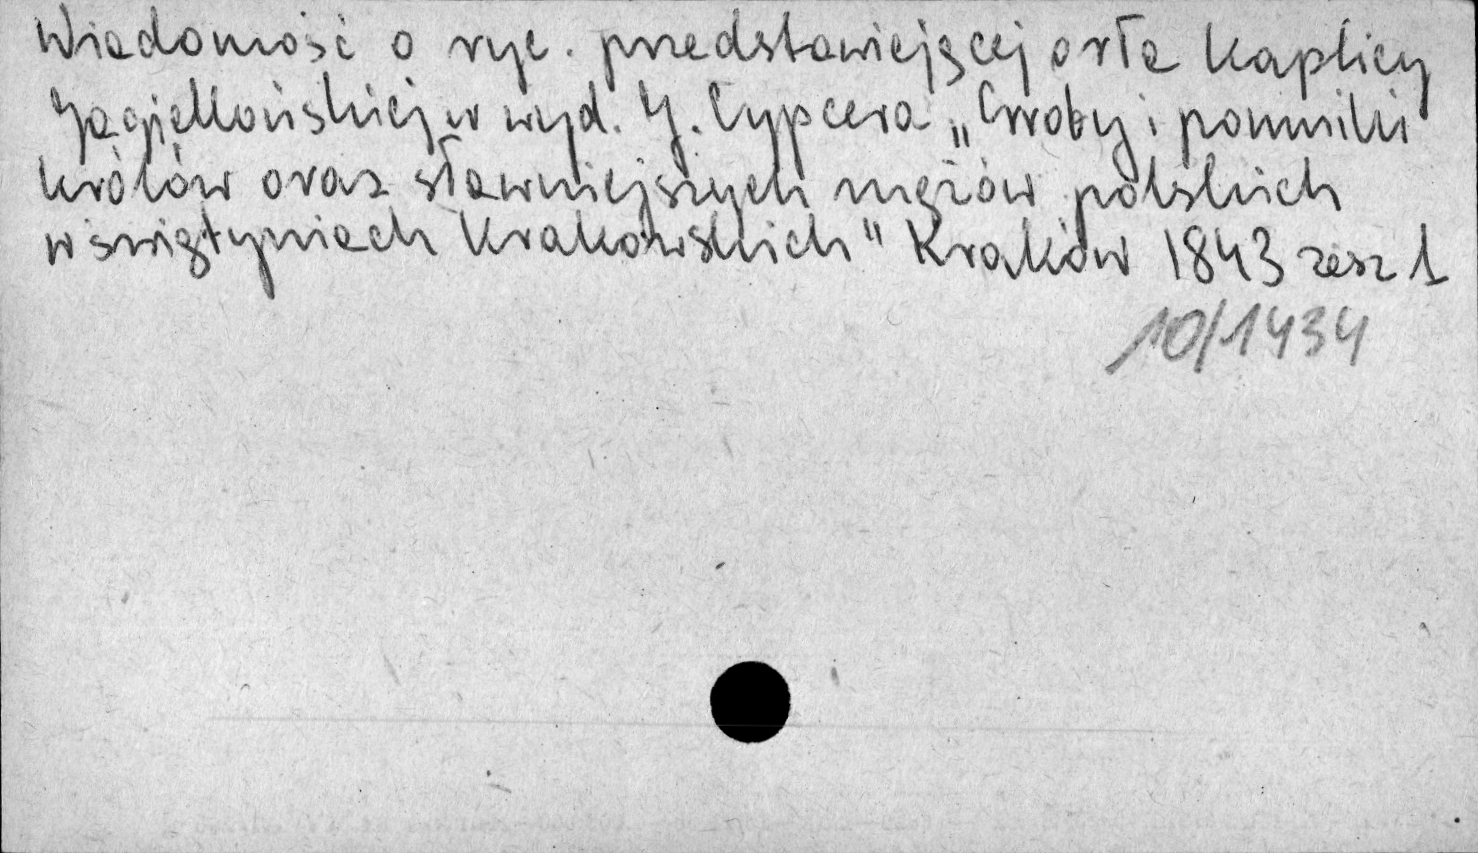 Wiadomość o ryc. przedstawiającej orła Kaplicy
Jagiellońskiej w wyd. J. Cypcera „Groby i pomniki
królów oraz sławniejszych mężów polskich
w świątyniach Krakowskich" Kraków 1843 zesz 1
10/1434